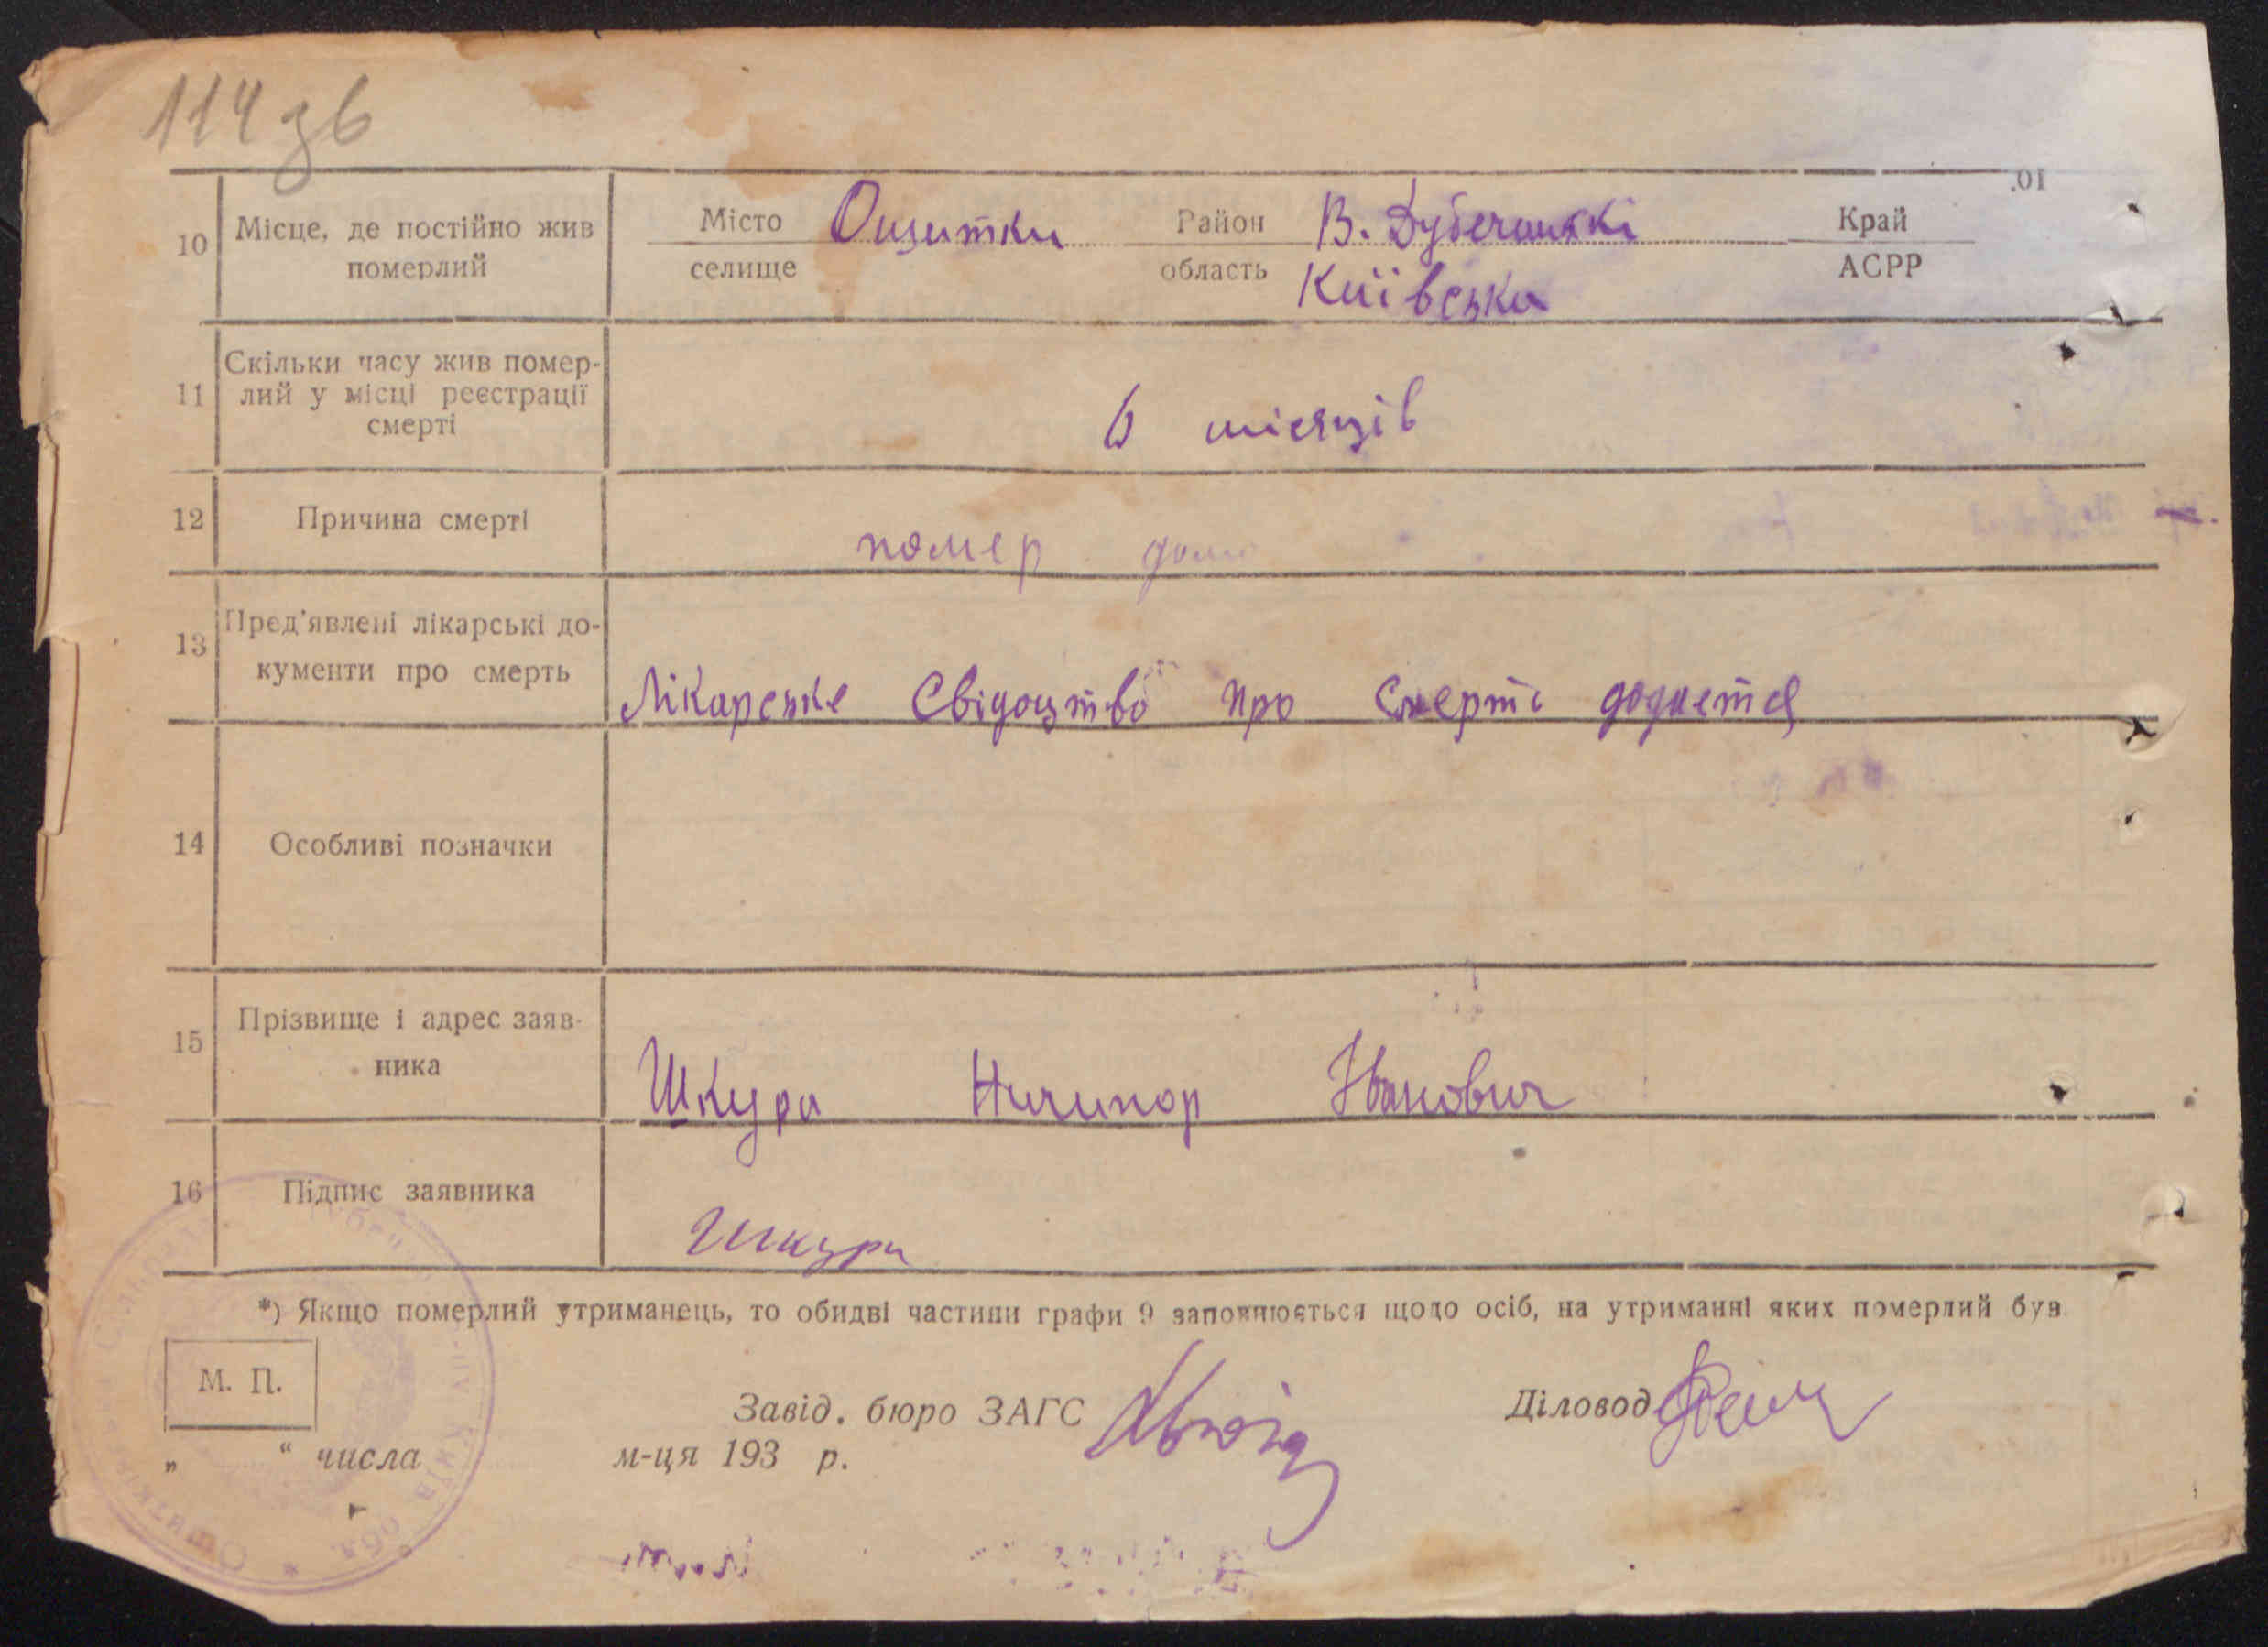 114 зв
10 Місце, де постійно жив померлий
Місто Ощитки Район В. Дубечанські Край
селище область Київська АСРР
11 Скільки часу жив помер-
лий у місці реєстрації
смерті
6 місяців
12 Причина смерті
помер
13 Пред'явлені лікарські до-
кументи про смерть
Лікарське Свідоцтво про Смерть додается
14 Особливі позначки
15 Прізвище і адрес заяв-
ника
Шкура Ничипор Іванович
16 Підпис заявника
Шкура
*) Якщо померлий утриманець, то обидві частини графи 9 заповнюється щодо осіб, на утриманні яких померлий був.
М. П.
Завід. бюро ЗАГС Діловод
„ “ числа м-ця 193 р.